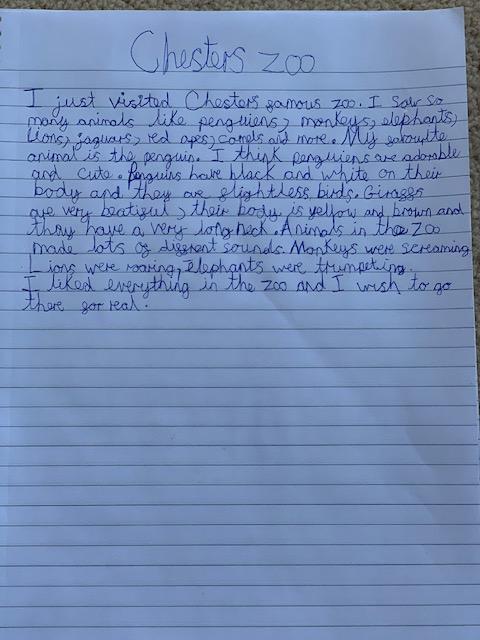 Chesters zoo
I just visited Chesters famous zoo. I saw so
many animals like penguiens, monkeys, elephants,
lions, jaguars, red apes, camels and more. My favourite
animal is the penguin. I think penguiens are adorable
and cute. Penguins have black and white on their
body and they are flightless birds. Giraffs
are very beatiful, their body is yellow and brown and
they have a very long neck. Animals in the zoo
made lots of different sounds. Monkeys were screaming
Lions were roaring, elephants were trumpeting.
I liked everything in the zoo and I wish to go
there for real.